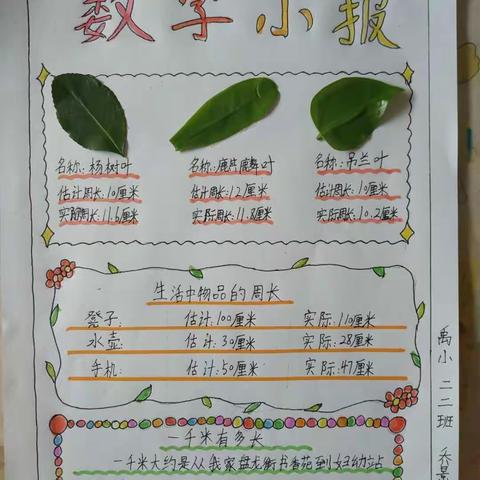 数学小报
名称:杨树叶
估计周长:10厘米
实际周长:11.6厘米
名称:鹿麒麟叶
估计周长:12厘米
实际周长:11.8厘米
名称:吊兰叶
估计周长:10厘米
实际周长:10.2厘米
生活中物品的周长
凳子: 估计:100厘米 实际:110厘米
水壶: 估计:30厘米 实际:28厘米
手机: 估计:50厘米 实际:47厘米
一千米有多长
一千米大约是从我家盘龙街书香苑到妇幼站
禹小 二二班 乔景